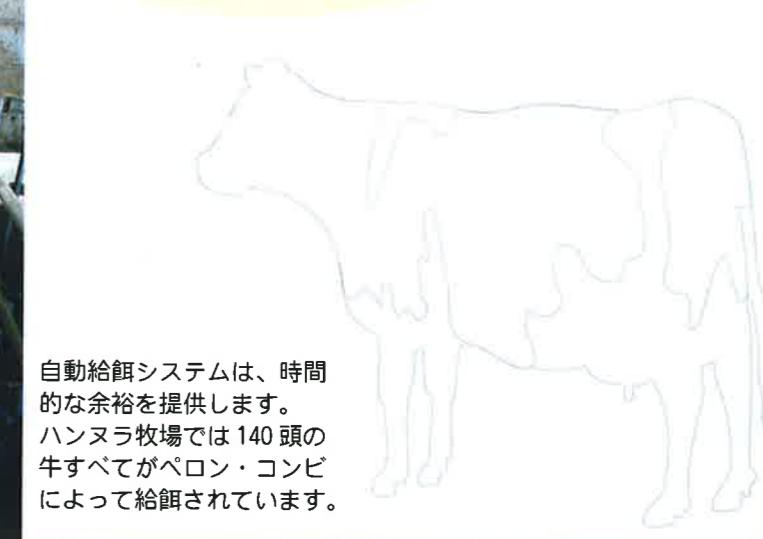 自動給餌システムは、時間
的な余裕を提供します。
ハンヌラ牧場では 140 頭の
牛すべてがペロン・コンビ
によって給餌されています。